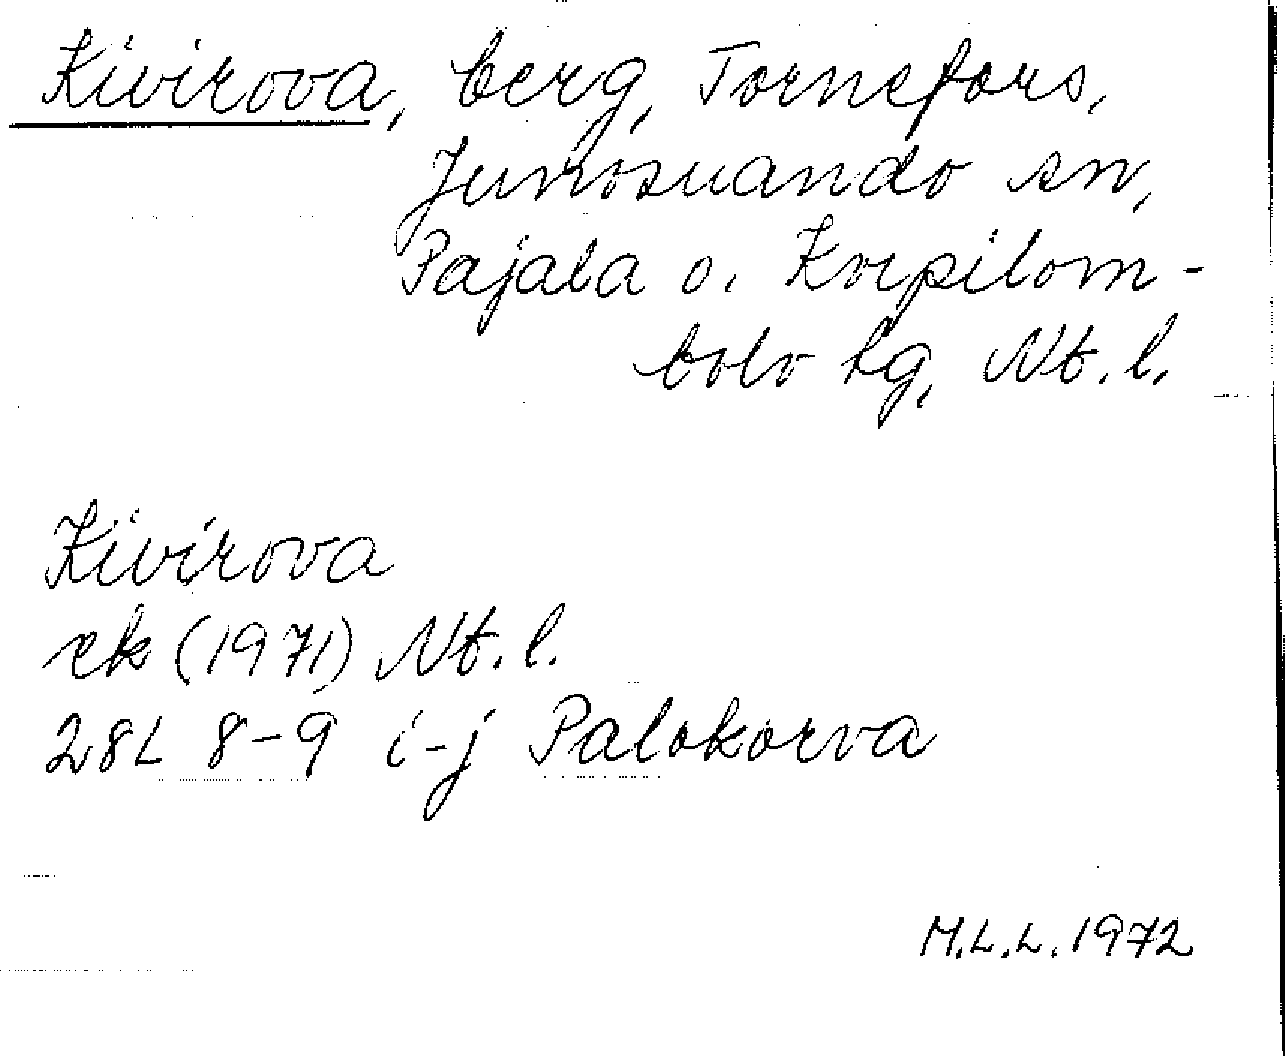 Kivirova, berg, Tornefors,
Junosuando sn,
Pajala o. Korpilom-
bolo tg, Nt. l.
Kivirova
ek (1971) Nt. l.
28L 8-9 i-j Palokorva
M.L.L. 1972